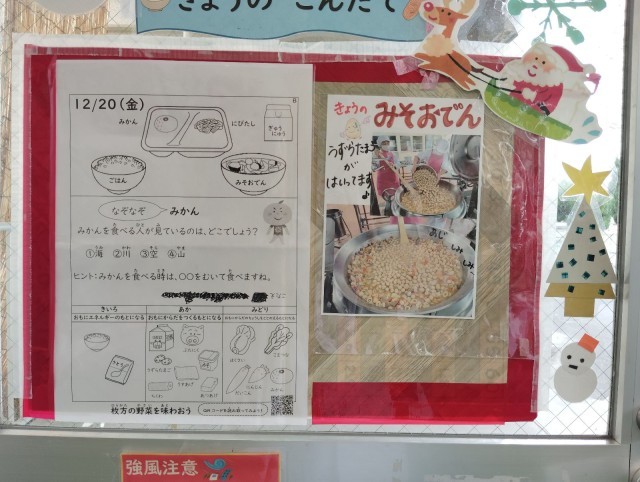 きょうの こんだて
12/20(金)
みかん
にびたし
ぎゅうにゅう
ごはん
みそおでん
なぞなぞ みかん
みかんを食べる人が見ているのは、どこでしょう?
①海 ②川 ③空 ④山
ヒント:みかんを食べる時は、〇〇をむいて食べますね。
きいろ
おもにエネルギーのもとになる
あか
おもにからだをつくるもとになる
みどり
枚方の野菜を味わおう
QRコードを読み取ってみよう!
きょうの みそおでん
うずらたまご
が
はいってます
あじ
しみ
しみ
強風注意